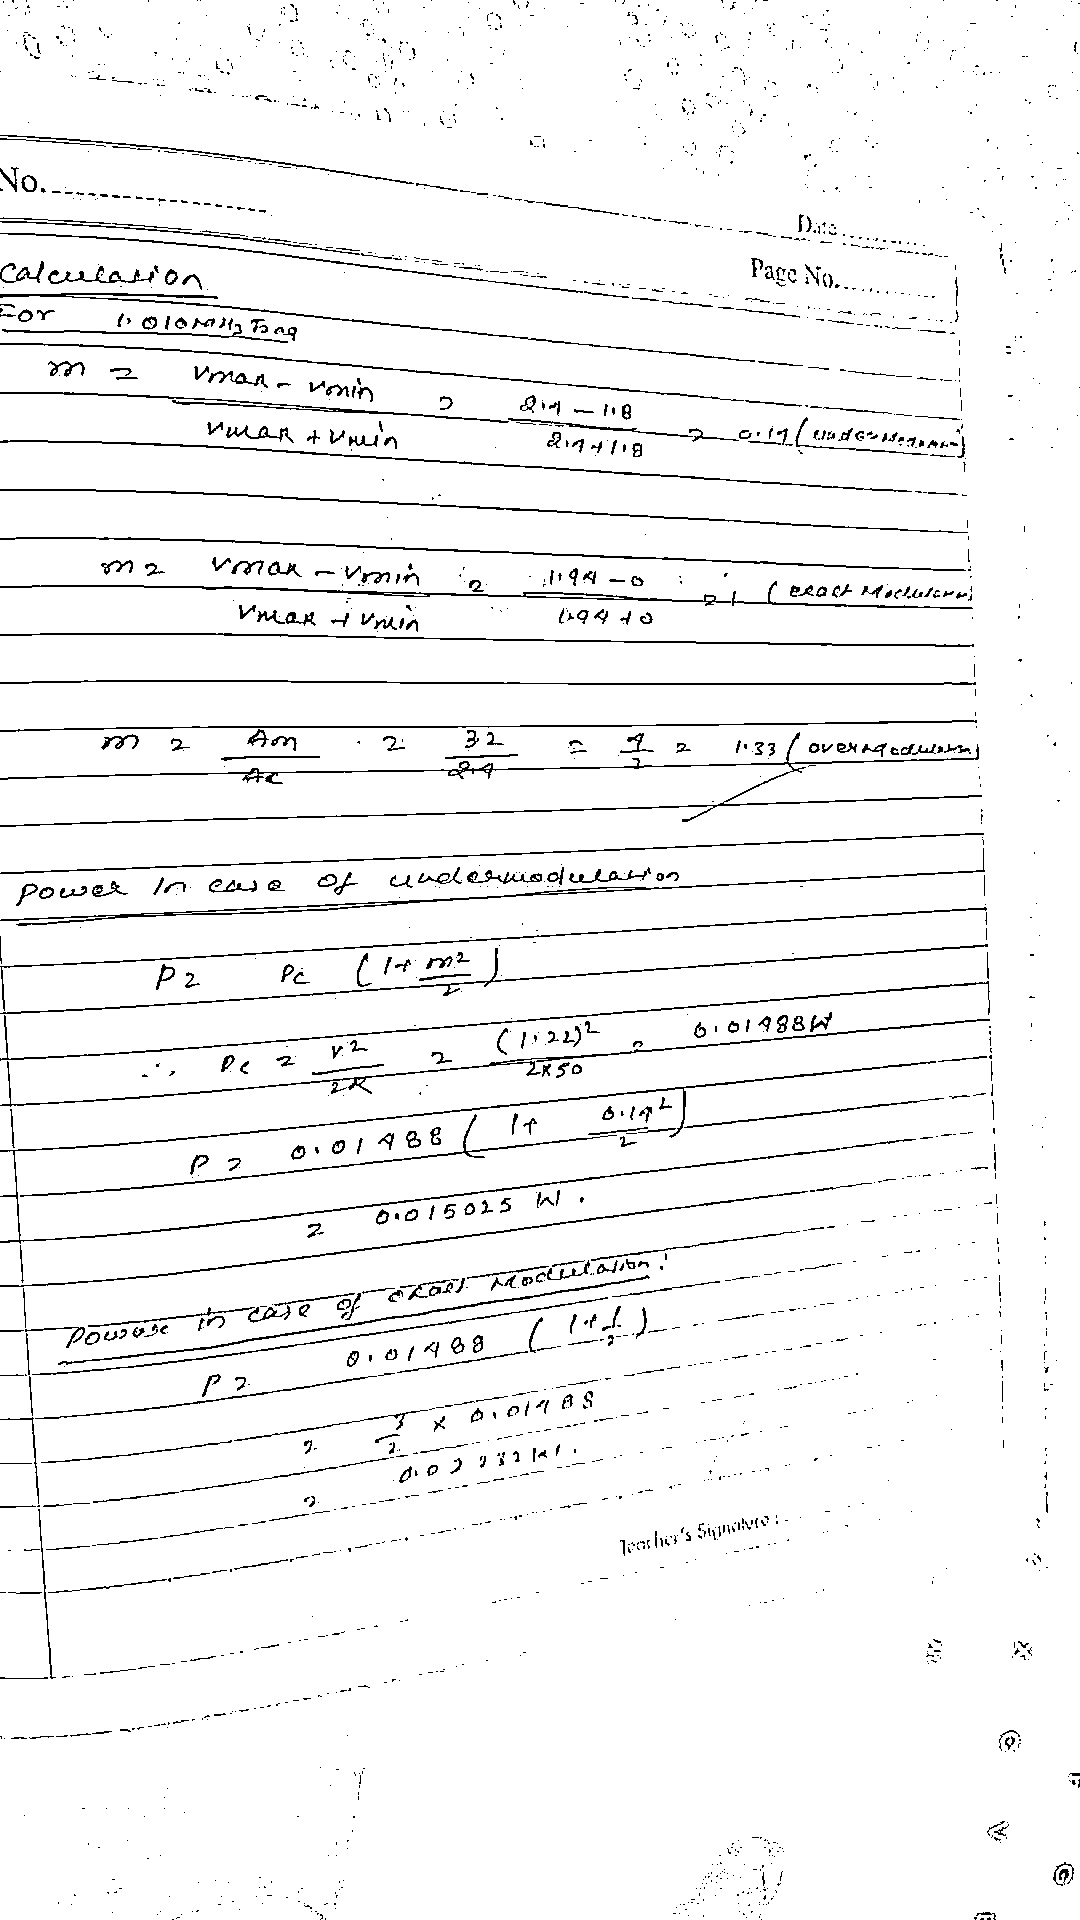 No...............
Date............
Page No............
Calculation
For 1.010 MHz
m = Vmax - Vmin / Vmax + Vmin = 2.4 - 1.8 / 2.4 + 1.8 = 0.14 (
m = Vmax - Vmin / Vmax + Vmin = 1.94 - 0 / 1.94 + 0 = 1 (exact Modulation)
m = Am / Ac = 3.2 / 2.4 = 4 / 3 = 1.33 (overmodulation)
Power in case of undermodulation
P = Pc (1 + m² / 2)
∴ Pc = V² / 2R = (1.22)² / 2x50 = 0.01488W
P = 0.01488 (1 + 0.14² / 2)
= 0.015025 W.
Power in case of exact Modulation:
P = 0.01488 (1 + 1 / 2)
= 3 / 2 x 0.01488
= 0.02232W.
Teacher's Signature :